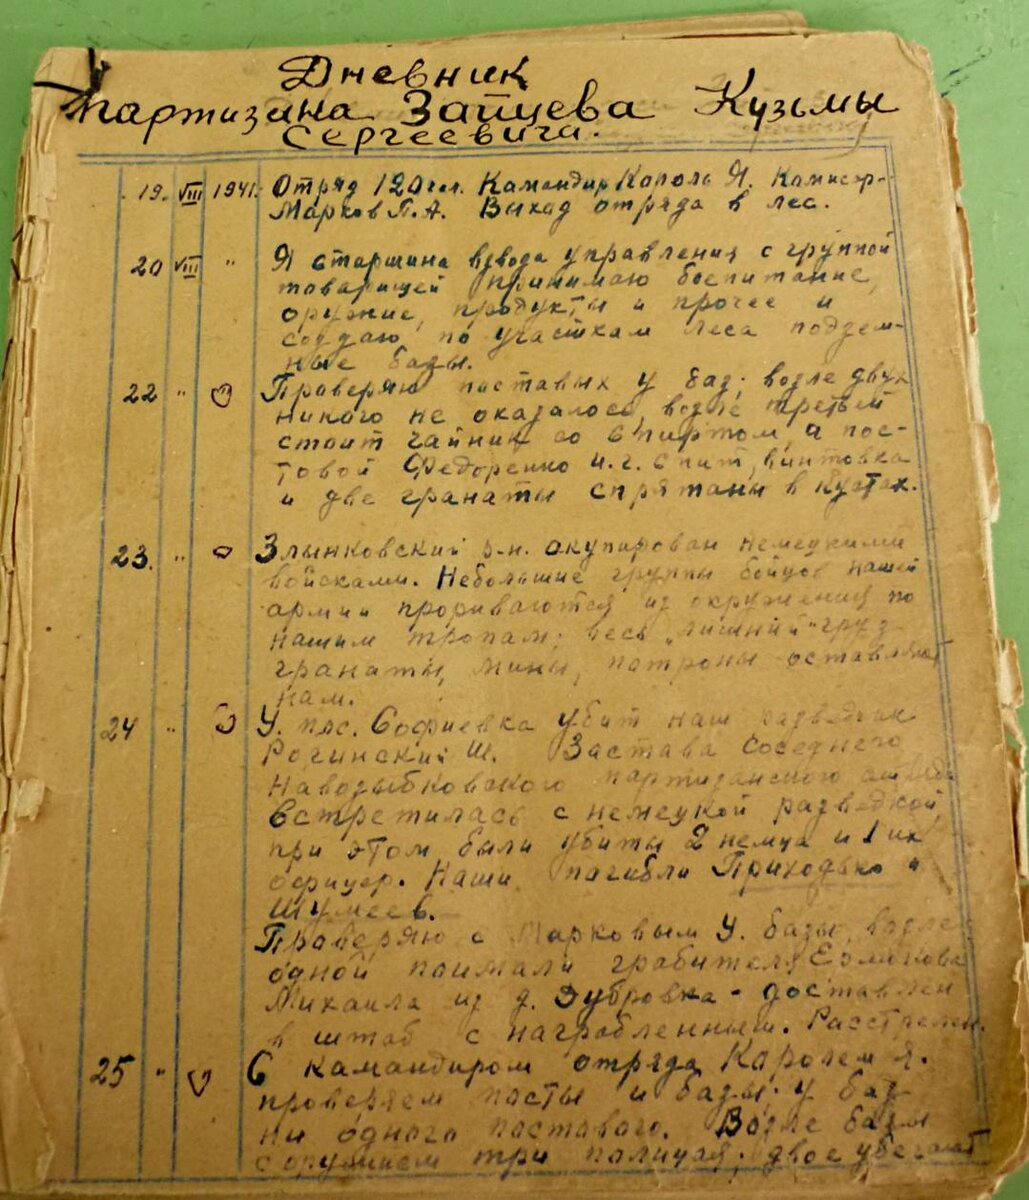 Дневник
партизана Зайцева Кузьмы
Сергеевича.
19. VIII 1941. Отряд 120 чел. Командир Кароль Я. Комисар-
Марков П.А. Выход отряда в лес.
20 VIII " Я старшина взвода управления с группой
товарищей принимаю боепитание,
оружие, продукты и прочее и
создаю по участкам леса подзем-
ные базы.
22 " Праверяю паставых у баз; возле двух
никого не оказалось, возле третьей
стоит чайник со спиртом, а пос-
товой Федоренко И.Г. спит, винтовка
и две гранаты спрятаны в кустах.
23. " Злынковский р-н. окупирован немецкими
войсками. Небольшие группы бойцов нашей
армии прорываются из окружения по
нашим тропам; весь "лишний" груз
гранаты, мины, патроны оставляют
нам.
24 " У пос. Софиевка убит наш разведчик
Рогинский Ш. Застава соседнего
Новозыбковского партизанского отряда
встретилась с немецкой разведкой,
при этом были убиты 2 немца и 1 их
офицер. Наши погибли Приходько и
Шумеев.
Праверяю с Марковым У. базы, возле
одной поимали грабителя
Михаила из д. Дубровка - доставлен
в штаб с награбленным. Расстрелян.
25 " С командиром отряда Каролем Я.
проверяем пасты и базы; у баз
ни одного паставого. Возле базы
с оружием три палицая; двое убегают